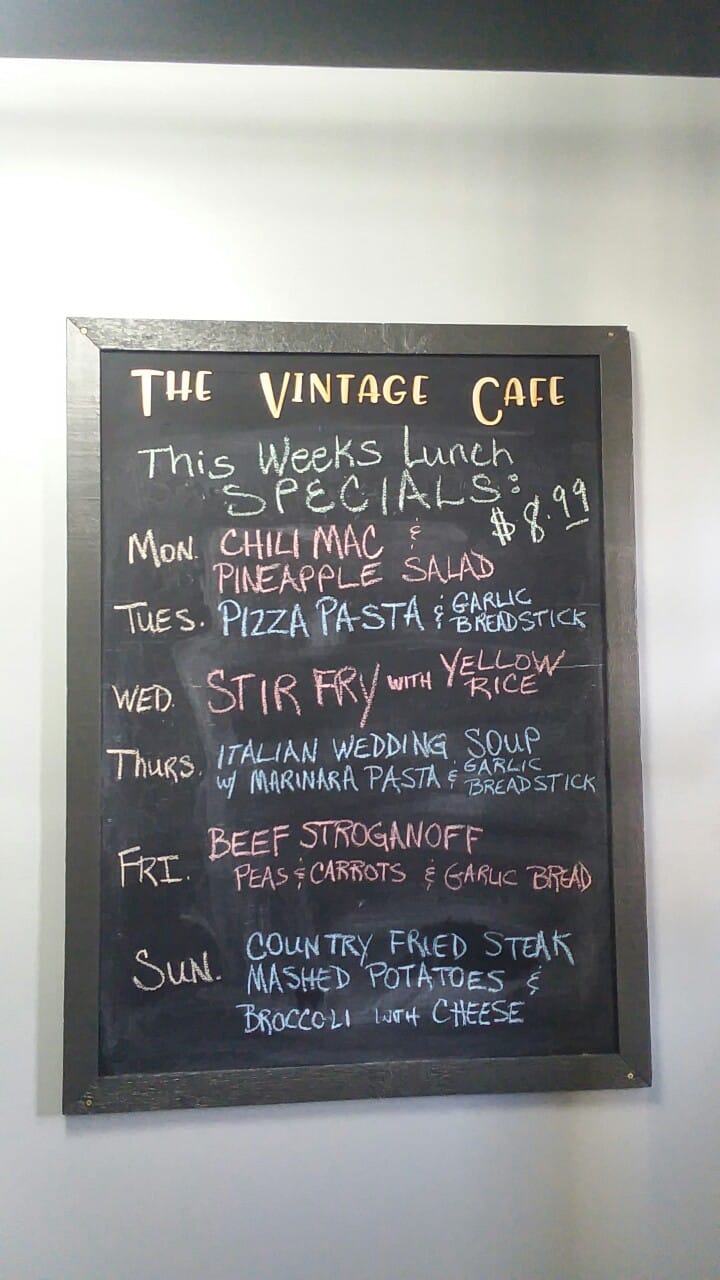 THE VINTAGE CAFE
This Weeks Lunch
SPECIALS:
$8.99
MON. CHILI MAC &
PINEAPPLE SALAD
TUES. PIZZA PASTA & GARLIC
BREADSTICK
WED. STIR FRY WITH YELLOW
RICE
THURS. ITALIAN WEDDING SOUP
W/ MARINARA PASTA & GARLIC
BREADSTICK
FRI. BEEF STROGANOFF
PEAS & CARROTS & GARLIC BREAD
SUN. COUNTRY FRIED STEAK
MASHED POTATOES &
BROCCOLI WITH CHEESE